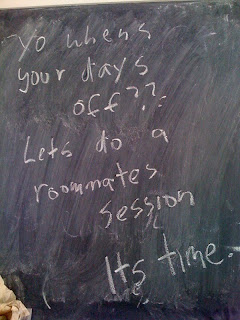 Yo whens
your days
off??
Lets do a
roommates
session
Its time.